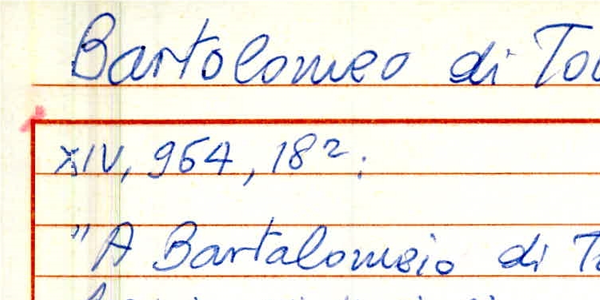 Bartolomeo di
XIV, 964, 18²:
"A Bartalomeio di